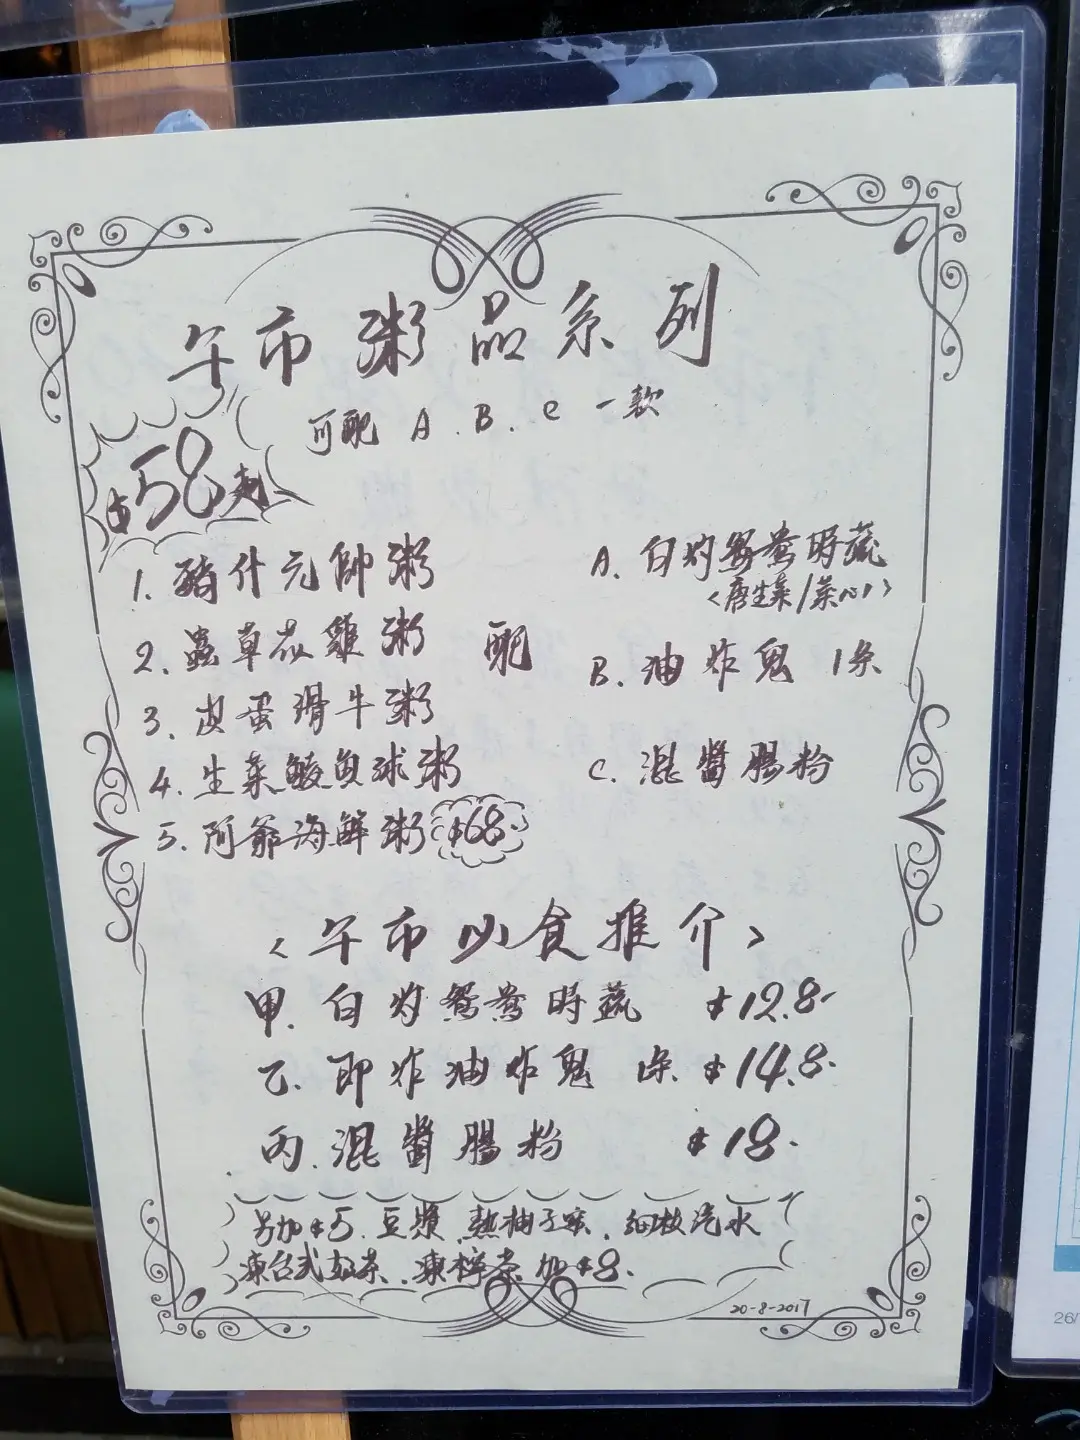 午市粥品系列
可配 A. B. C 一款
$58起
1. 豬什元帥粥
2. 蟲草花雞粥
3. 皮蛋滑牛粥
4. 生菜鯪魚球粥
5. 阿爺海鮮粥 $68.
配
A. 白灼鴛鴦時蔬
<唐生菜/菜心>
B. 油炸鬼 1条
C. 混醬腸粉
<午市小食推介>
甲. 白灼鴛鴦時蔬 $12.8-
乙. 即炸油炸鬼 1条. $14.8-
丙. 混醬腸粉 $18-
另加$5. 豆漿. 熱柚子蜜. 細枝汽水
凍台式奶茶. 凍檸茶 加$8.
20-8-2017
26/